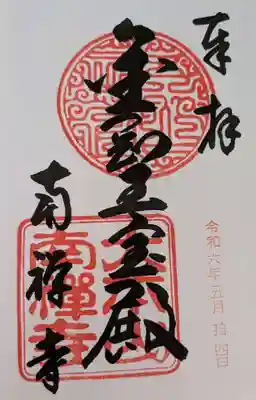 奉拝
令和六年五月拾四日
金剛王宝殿
南禅寺
南禪寺